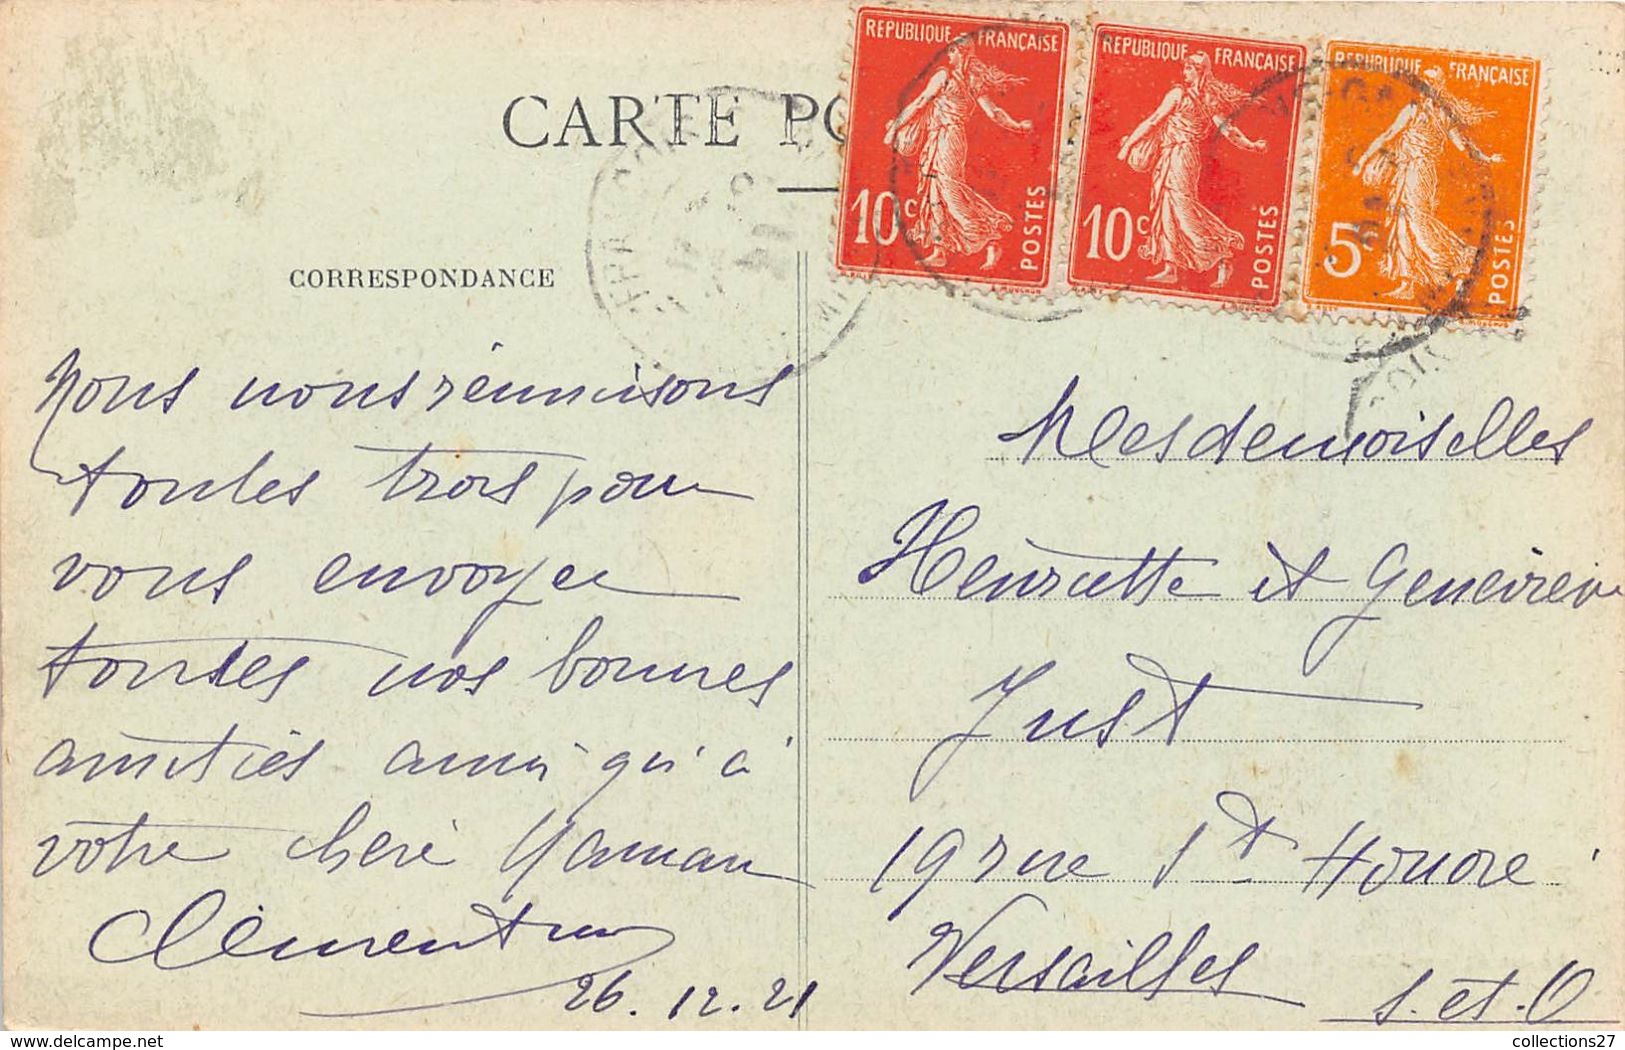 CARTE PO
REPUBLIQUE FRANÇAISE
10c
POSTES
REPUBLIQUE FRANÇAISE
10c
POSTES
REPUBLIQUE FRANÇAISE
5
POSTES
CORRESPONDANCE
Nous nous réunnisons
toutes trois pour
vous envoyer
toutes nos bonnes
amitiés ainsi qu'à
votre cheré Maman
Clémentine
26.12.21
Mesdemoiselles
Henriette et Geneviève
Just
19 rue St Honoré
Versailles
S. et. O
delcampe.net
collections27